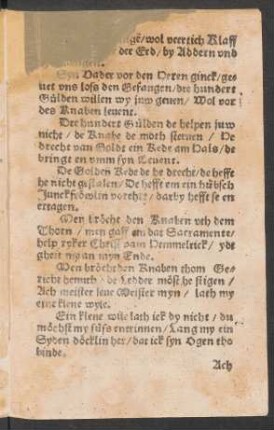 wol veertich Klaff
der Erd/ by Addern vnd
Syn Vader vor den Heren ginck/ ges
uet vns loss den Gefangen/ dre hundert
Gülden willen wy juw geuen/ Wol vor
des Knaben leuent.
Dre hundert Gülden de helpen juw
nicht/ de Knabe de moth steruen/ De
drecht van Golde ein Kede am Halß/ de
bringe en vmm syn Leuent.
De Golden Kede de he drecht/ de hefft
he nicht gestalen/ De hefft em ein hübsch
Junckfröwlin vorehrt/ darby hefft se en
ertagen.
Men bröcht den Knaben veh dem
Thorn/ men gaff em dat Sacramente/
help ryker Christ vam Hemmelrick/ ydt
gheit my an myn Ende.
Men bröcht den Knaben thom Ges
richt henuth/ de Ledder möst he stigen/
Ach meister leue Meister myn/ lath my
eine klene wyle.
Ein klene wile lath ick dy nicht/ du
möchst my süß entrinnen/ Lang my ein
Syden döcklin her/ dat ick syn Ogen tho
binde.
Ach